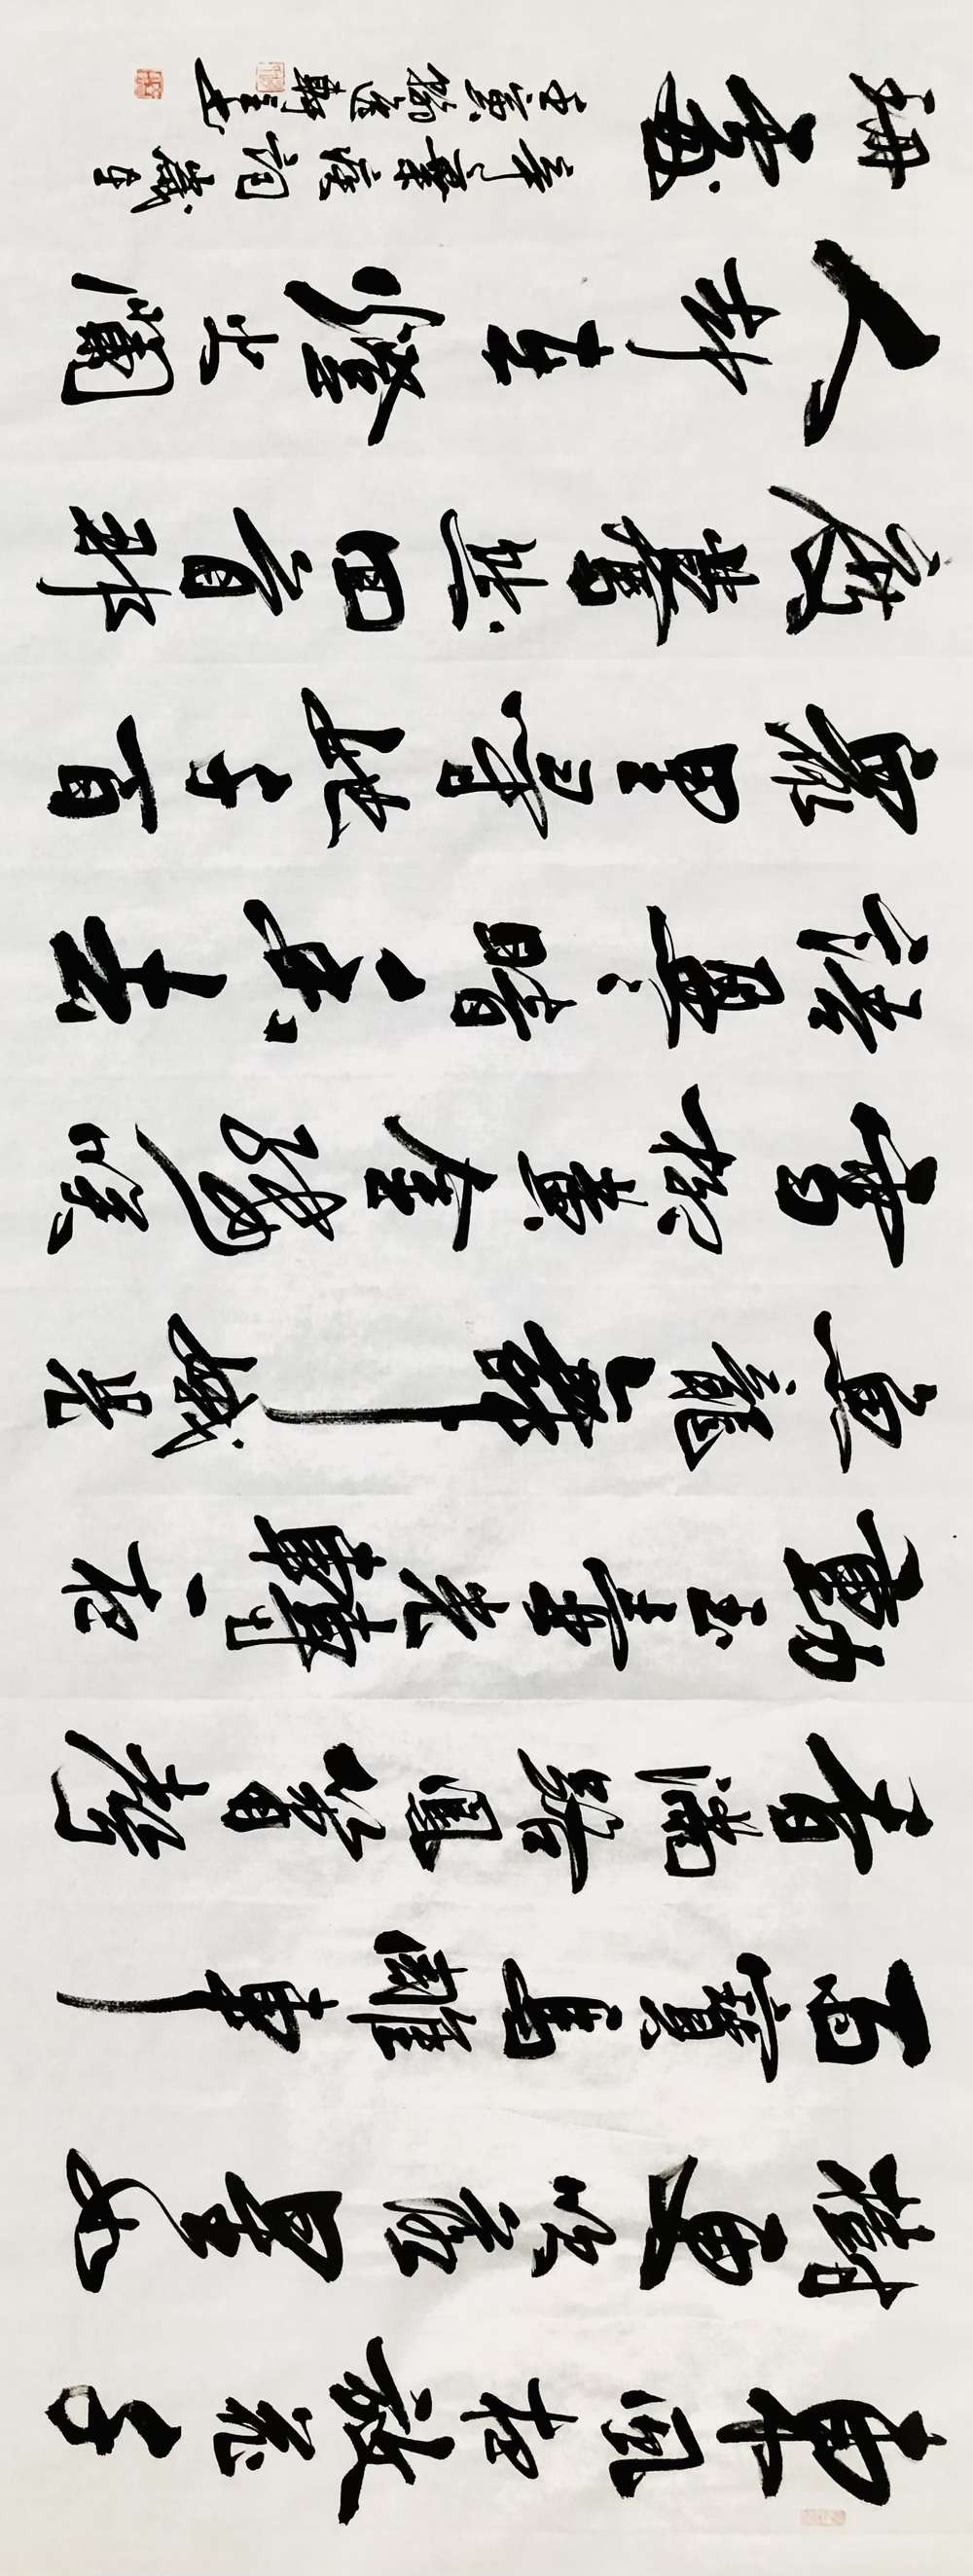 東風夜放花千
樹更吹落星如
雨寶馬雕車
香滿路鳳簫聲
動玉壺光轉一夜
魚龍舞蛾兒
雪柳黃金縷笑
語盈盈暗香去
眾里尋他千百
度驀然回首那
人卻在燈火闌
珊處
辛棄疾詞歲在
壬寅